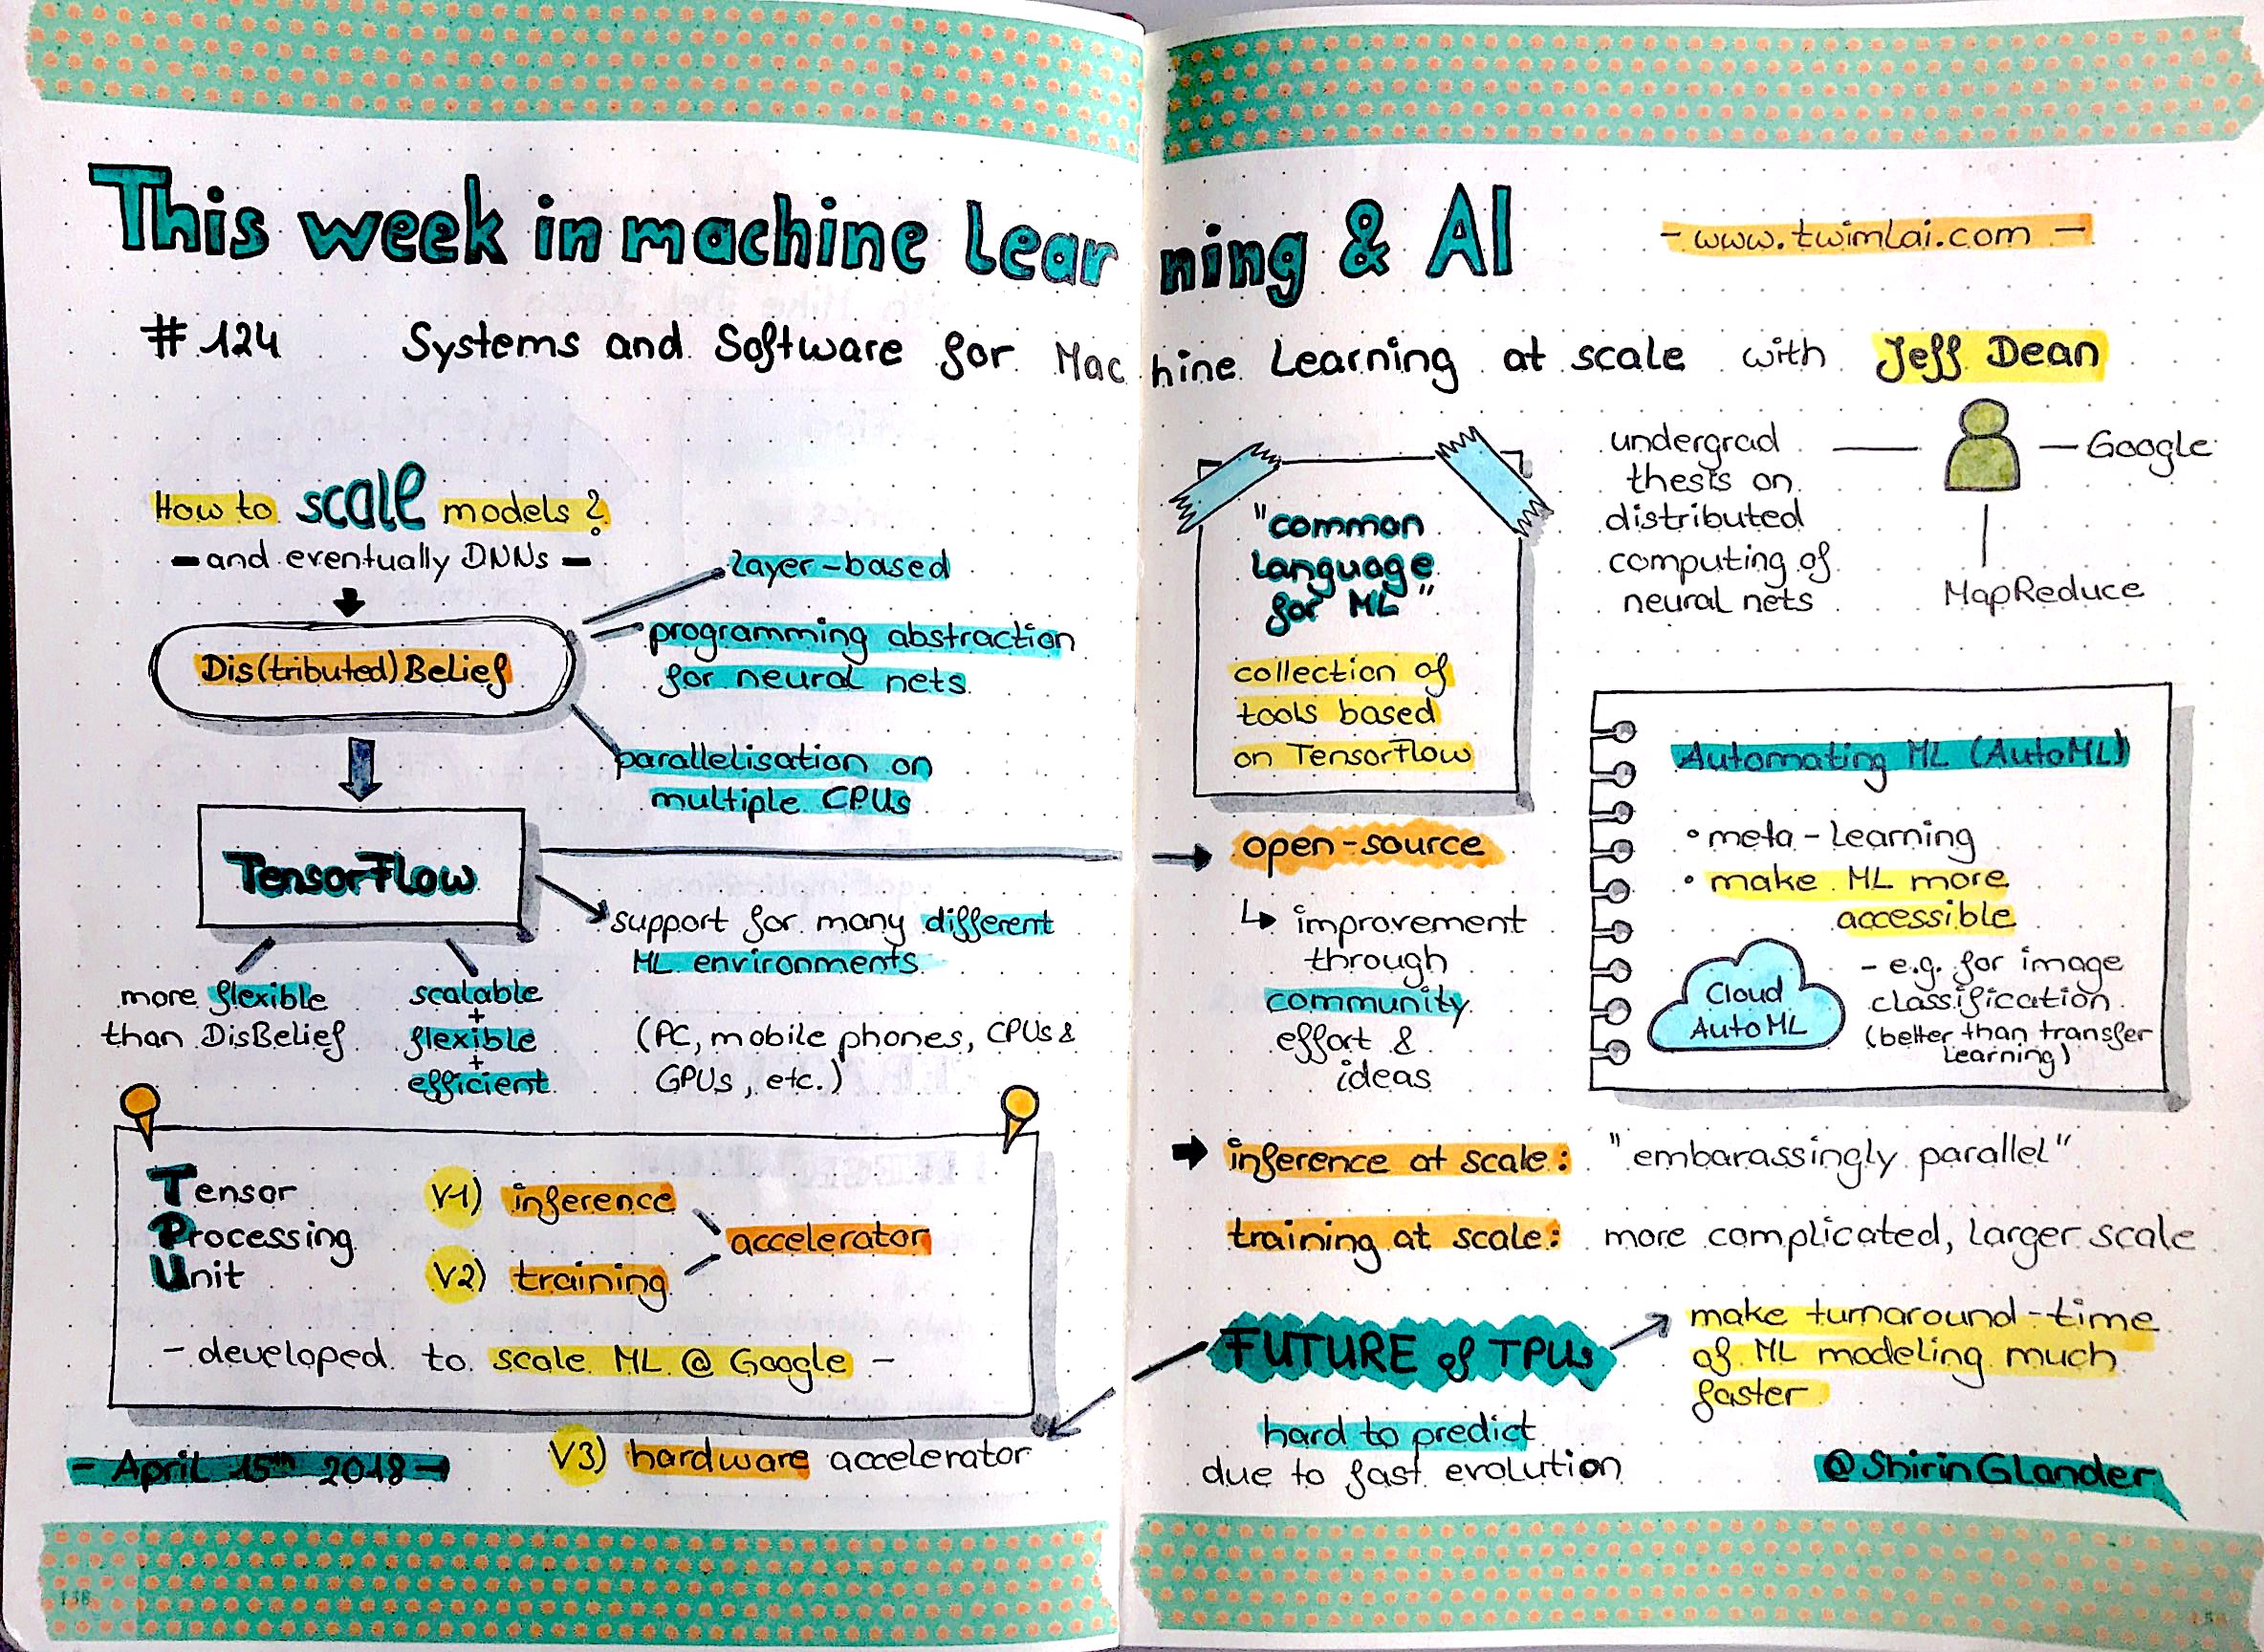 This week in machine learning & AI
- www.twimlai.com -
# 124 Systems and Software for Machine Learning at scale with Jeff Dean
How to scale models?
- and eventually DNNs -
Dis(tributed)Belief
layer-based
programming abstraction
for neural nets
parallelisation on
multiple CPUs
TensorFlow
support for many different
ML environments
(PC, mobile phones, CPUs &
GPUs, etc.)
more flexible
than DisBelief
scalable
+
flexible
+
efficient
Tensor
Processing
Unit
V1) inference
V2) training
accelerator
- developed to scale ML @ Google -
V3) hardware accelerator
- April 15th 2018 -
"common
language
for ML"
collection of
tools based
on TensorFlow
undergrad
thesis on
distributed
computing of
neural nets
Google
MapReduce
open-source
improvement
through
community
effort &
ideas
Automating ML (AutoML)
• meta-learning
• make ML more
accessible
Cloud
AutoML
- e.g. for image
classification
(better than transfer
learning)
inference at scale: "embarassingly parallel"
training at scale: more complicated, larger scale
FUTURE of TPUs
make turnaround-time
of ML modeling much
faster
hard to predict
due to fast evolution
@ShirinGlander
138